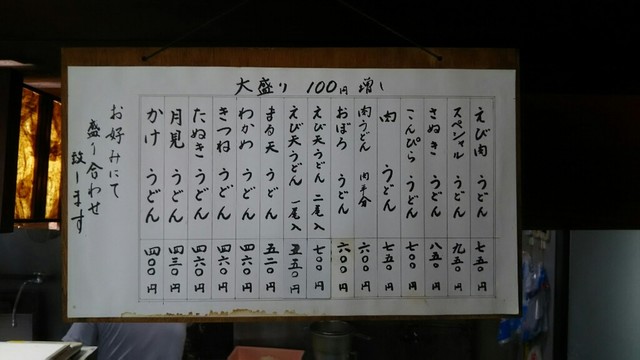 大盛り 100円増し
えび肉 うどん 七五〇円
スペシャル うどん 九五〇円
さぬき うどん 八五〇円
こんぴら うどん 七〇〇円
肉 うどん 七五〇円
肉うどん 肉半分 六〇〇円
おぼろ うどん 六〇〇円
えび天うどん 二尾入 七〇〇円
えび天うどん 一尾入 五五〇円
まる天 うどん 五二〇円
わかめ うどん 四六〇円
きつね うどん 四六〇円
たぬき うどん 四六〇円
月見 うどん 四三〇円
かけ うどん 四〇〇円
お好みにて
盛り合わせ
致します